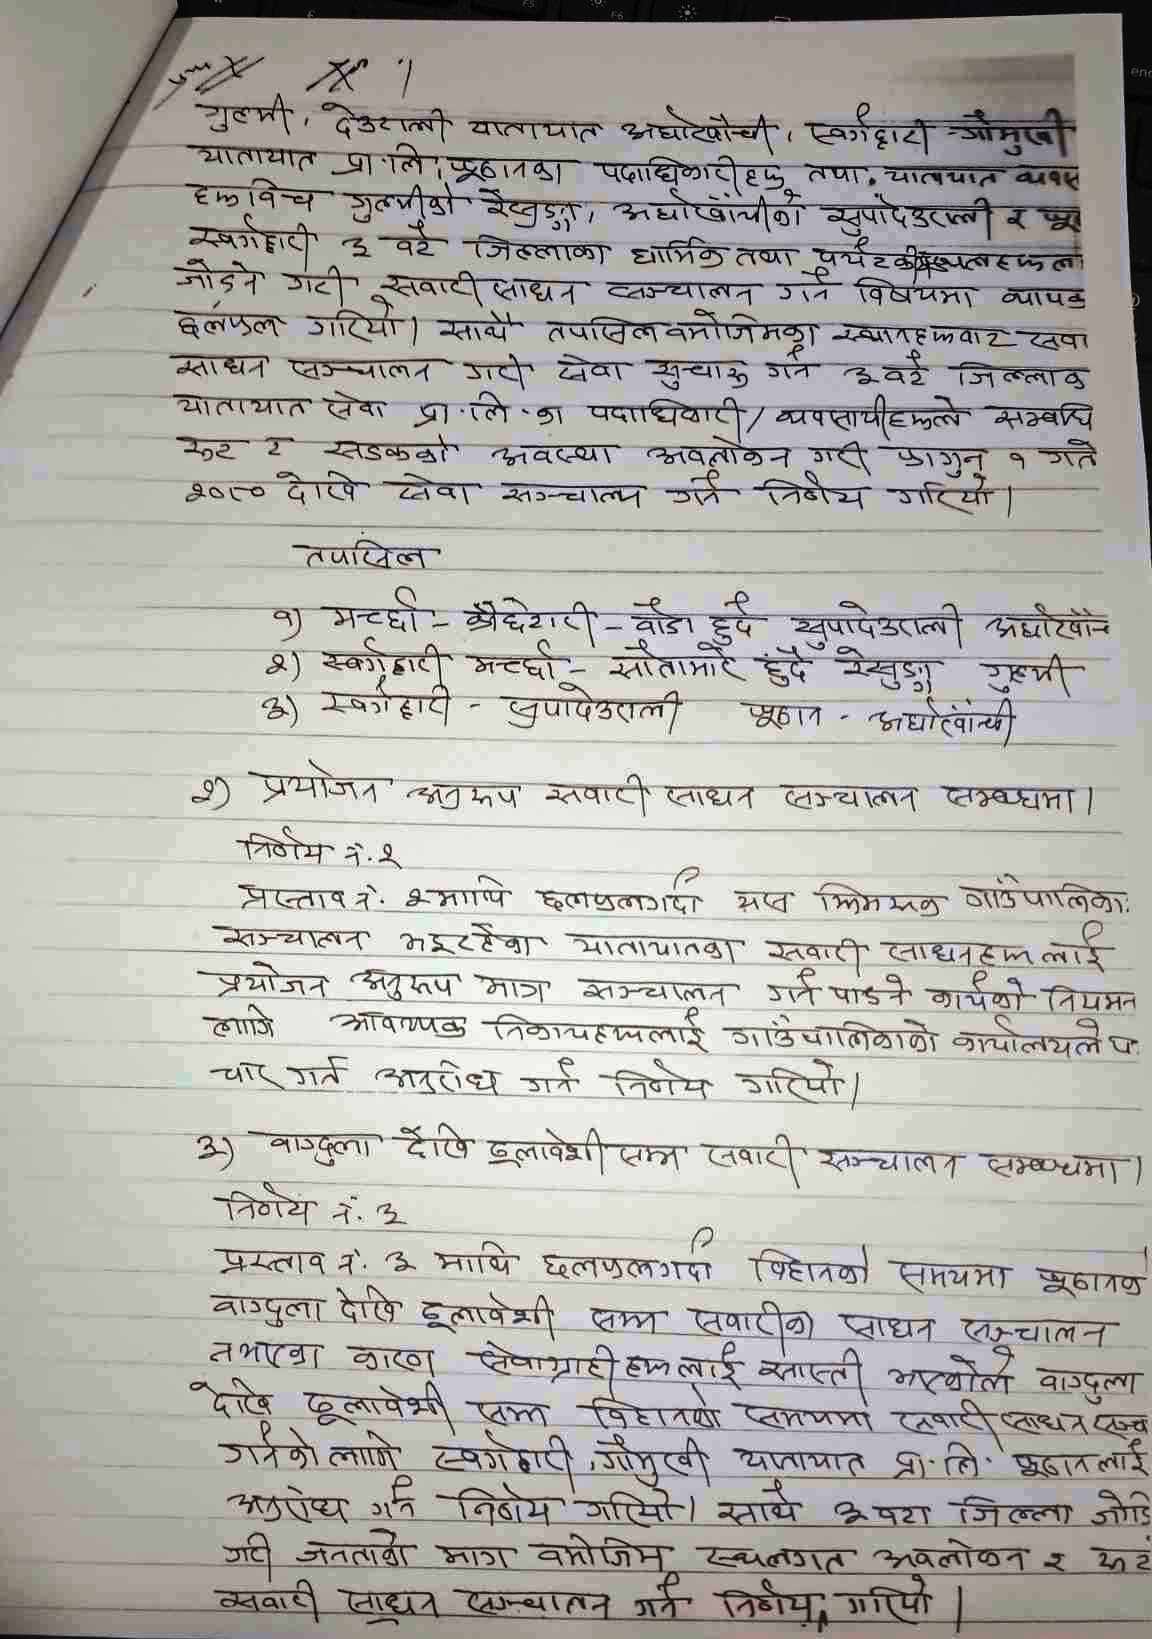 गुल्मी, देउराली यातायात अर्घाखाँची, स्वर्गद्वारी गौमुखी
यातायात प्रा.लि. प्यूठानका पदाधिकारीहरू तथा यातायात व्यवसा
हरूविच गुल्मीको रेसुङ्गा, अर्घाखाँचीको सुपादेउराली र प्यू
स्वर्गद्वारी ३ वटै जिल्लाका धार्मिक तथा पर्यटकीय स्थलहरूला
जोड्ने गरी सवारी साधन सञ्चालन गर्ने विषयमा व्यापक
छलफल गरियो। साथै तपसिल वमोजिमका स्थानहरूवाट सवा
साधन सञ्चालन गरी सेवा सुचारू गर्न ३ वटै जिल्लाक
यातायात सेवा प्रा.लि.का पदाधिकारी/व्यवसायीहरूले सम्बन्धि
रूट र सडकको अवस्था अवलोकन गरी फागुन १ गते
२०८० देखि सेवा सञ्चालन गर्ने निर्णय गरियो।
तपसिल
१) मच्छी - - वाँडा हुदै सुपादेउराली अर्घाखाँच
२) स्वर्गद्वारी मच्छी - सौतामारे हुंदै रेसुङ्गा गुल्मी
३) स्वर्गद्वारी - सुपादेउराली प्यूठान - अर्घाखाँची
२) प्रयोजन अनुरूप सवारी साधन सञ्चालन सम्बन्धमा।
निर्णय नं. २
प्रस्ताव नं. २ माथि छलफलगर्दा यस झिमरूक गाउँपालिका
सञ्चालन भइरहेका यातायातका सवारी साधनहरूलाई
प्रयोजन अनुरूप मात्र सञ्चालन गर्न पाउने कार्यको नियमन
लागि आवश्यक निकायहरूलाई गाउँपालिकाको कार्यालयले प
चार गर्न अनुरोध गर्ने निर्णय गरियो।
३) वाग्दुला देखि ढूलावेशी सम्म सवारी सञ्चालन सम्बन्धमा।
निर्णय नं. ३
प्रस्ताव नं. ३ माथि छलफलगर्दा विहानको समयमा प्यूठानक
वाग्दुला देखि ढूलावेशी सम्म सवारीका साधन सञ्चालन
नभएका कारण सेवाग्राहीहरूलाई सास्ती भएकोले वाग्दुला
देखि ढूलावेशी सम्म विहानको समयमा सवारी साधन सञ्च
गर्नको लागि स्वर्गद्वारी, गौमुखी यातायात प्रा.लि. प्यूठानलाई
अनुरोध गर्ने निर्णय गरियो। साथै ३ वटा जिल्ला जोडि
गरी जनताको माग वमोजिम स्थलगत अवलोकन र रूट
सवारी साधन सञ्चालन गर्ने निर्णय गरियो।